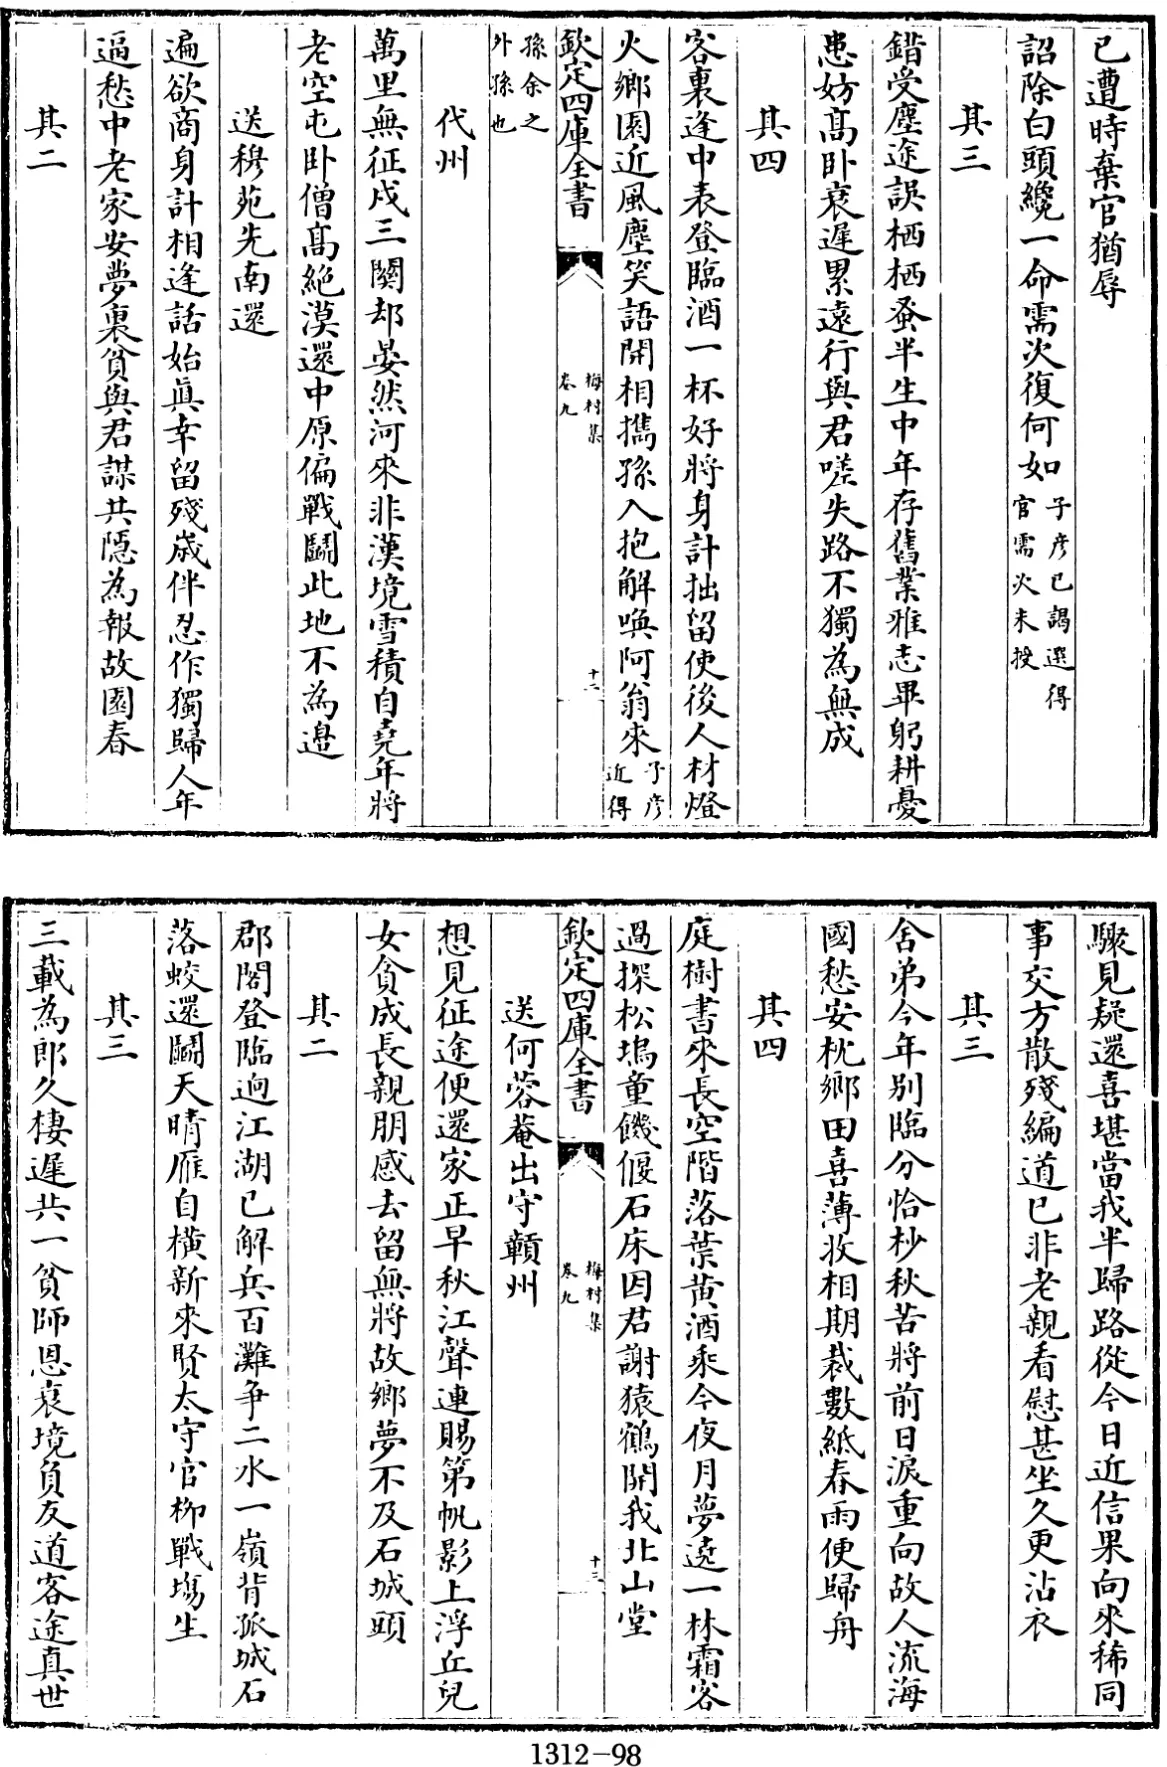 已遭時棄官猶辱
詔除白頭纔一命需次復何如子彦已謁選得官需次未授
其三
錯受塵途誤栖栖蚤半生中年存舊業雅志畢躬耕憂
患妨髙卧衰遲累遠行與君嗟失路不獨為無成
其四
客裏逢中表登臨酒一杯好將身計拙留使後人材燈
火鄉園近風塵笑語開相攜孫入抱解喚阿翁來子彦近得
欽定四庫全書
梅村集
卷九
十二
孫余之外孫也
代州
萬里無征戍三關却晏然河來非漢境雪積自堯年將
老空屯卧僧髙絶漠還中原偏戰鬭此地不為邉
送穆苑先南還
遍欲商身計相逢話始真幸留殘歳伴忍作獨歸人年
逼愁中老家安夢裏貧與君謀共隱為報故園春
其二
驟見疑還喜堪當我半歸路從今日近信果向來稀同
事交方散殘編道已非老親看慰甚坐久更沾衣
其三
舍弟今年别臨分恰杪秋苦將前日淚重向故人流海
國愁安枕鄉田喜薄收相期裁數紙春雨便歸舟
其四
庭樹書來長空階落葉黄酒乘今夜月夢遶一林霜客
過探松塢童饑偃石床因君謝猿鶴開我北山堂
欽定四庫全書
梅村集
卷九
十三
送何蓉菴出守贛州
想見征途便還家正早秋江聲連賜第帆影上浮丘兒
女貧成長親朋感去留無將故鄉夢不及石城頭
其二
郡閣登臨迥江湖已解兵百灘争二水一嶺背孤城石
落蛟還鬭天晴雁自橫新來賢太守官栁戰塲生
其三
三載為郎久棲遲共一貧師恩衰境負友道客途真世
1312-98